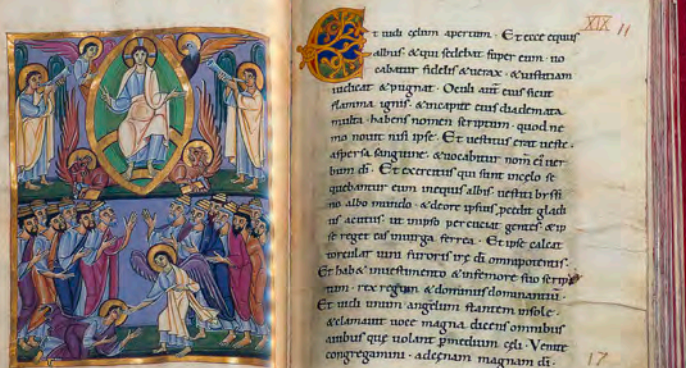 Et uidi celum apertum. Et ecce equus
albus. & qui sedebat super eum. uo
cabatur fidelis & uerax. & iustitiam
iudicat & pugnat. Oculi aūt eius sicut
flamma ignis. & incapite eius diademata
multa. habens nomen scriptum. quod ne
mo nouit nisi ipse. Et uestitus erat ueste.
aspersa sanguine. & uocabitur nom̄ ei' uer
bum dī. Et exercitus qui sunt incelo se
quebantur eum inequis albis. uestiti byssi
no albo mundo. & deore ipsius pcedit gladi
us acutus. ut inipso percutiat gentes. & ip
se reget eas inuirga ferrea. Et ipse calcat
torcular uini furoris irę dī omnipotentis.
Et hab& inuestimento & infemore suo scrip
tum. rex regum & dominus dominantiū.
Et uidi unum angelum stantem insole.
& clamauit uoce magna dicens omnibus
auibus quę uolant p medium cęli. Venite
congregamini. adcęnam magnam dī.
XIX
17